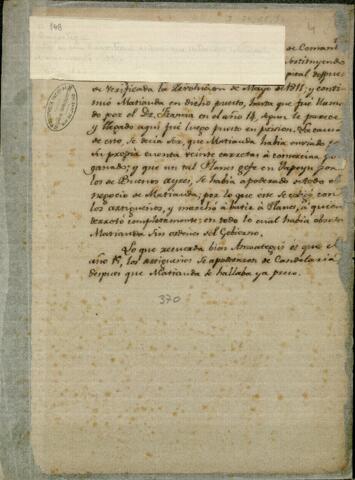 148
de Comand
Restituyendo
Capital despues
de verificada la Revolucion de Mayo de 1811; y conti
nuó Matiauda en dicho punto, hasta que fué llama
do por el Dr. Francia en el año 14, segun le parece
y llegado aquí fué luego puesto en posesion. La causa
de esto, se decia ser, que Matiauda habia enviado por
su propia cuenta veinte carretas á comerciar por
ganado; y que un tal Planes gefe en Yapeyú por
los de Buenos Ayres, se habia apoderado de todo el
negocio de Matiauda; por lo que este se coligó con
los artigueños, y marchó á batir á Planes, á quien
derrotó completamente; en todo lo cual habia obrado
Matiauda sin orden del Gobierno.
Lo que recuerda bien Amategui es que el
año 15, los artigueños se apoderaron de Candelaria
despues que Matiauda se hallaba ya preso.
370